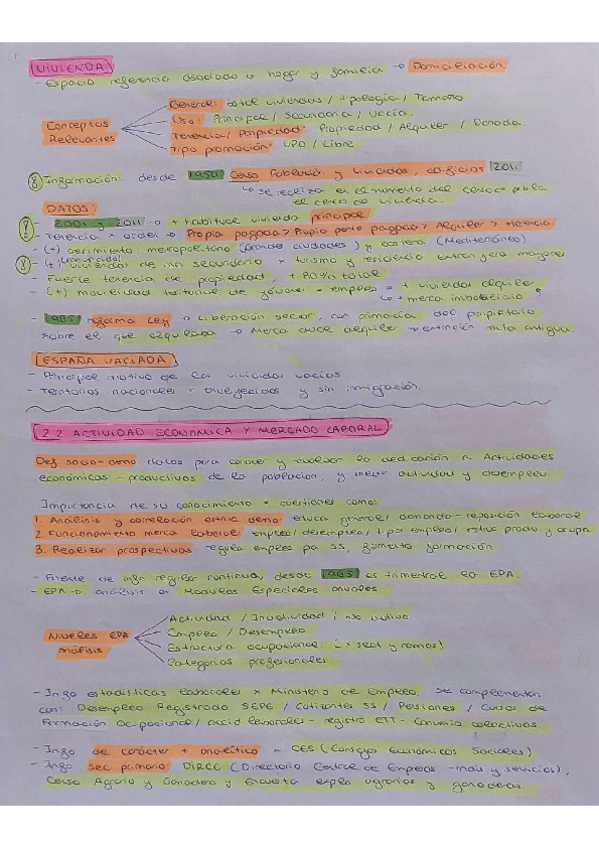 VIVIENDA
- Espacio referencia asociado a hogar y familia → Domiciliación
General: total viviendas / tipología / Tamaño
Uso: Principal / Secundaria / Vacía.
Conceptos Relevantes
Tenencia / Propiedad: Propiedad / Alquiler / Donada
Tipo promoción: VPO / Libre
Información: desde 1950 Censo Población y Viviendas, edificios 2011
↳ se realiza en el momento del censo
el censo de vivienda.
DATOS:
- 2001 y 2011 → + habitual vivienda principal
- Tenencia → orden → Propia pagada > Propia pend pagada > Alquiler > Herencia
- (+) crecimiento metropolitano (Grandes ciudades) y costera (Mediterráneo)
- (+) viviendas de uso secundario x turismo y residencia extranjera mayores
- Fuerte tenencia de propiedad, + 80% total
- (+) movilidad territorial de jóvenes x empleo = + viviendas alquiler
↳ + merca inmobiliario
- 1985 reforma Ley → liberación sector, con primacía del propietario
sobre el que alquilaba → Merca alquiler extinción renta antigua
ESPAÑA VACIADA
- Principal motivo de las viviendas vacías
- Territorios nacionales + envejecidos y sin inmigración.
2.2 ACTIVIDAD ECONÓMICA Y MERCADO LABORAL
Def socio-demo: datos para conocer y evaluar la dedicación a Actividades
económicas - productivas de la población, y medir actividad y desempleo.
Importancia de su conocimiento x cuestiones como:
1. Análisis y correlación estruc demo: educa general / demanda - reposición laboral
2. Funcionamiento merca laboral: empleo / desempleo / tipos empleo / estruc produ y ocupa
3. Realizar prospectivas: regula empleo pa SS, fomento formación
- Fuente de info regular continua, desde 1963 es trimestral la EPA.
- EPA → análisis en Modulos Especiales anuales
Actividad / Inactividad / No activo
Niveles EPA Análisis
Empleo / Desempleo
Estructura ocupacional (x sect y ramas)
Categorías profesionales
- Info estadísticas laborales x Ministerio de Empleo. Se complementan
con: Desempleo Registrado SEPE / Cotizantes SS / Pensiones / Cursos de
Formación Ocupacional / accid laborales - registro ETT - Convenio colectivos
- Info de carácter + analítico - CES (Consejo Económicos Sociales)
- Info sec primario: DIRCE (Directorio Central de Empresas -indls y servicios),
Censo Agrario y Ganadero y Encuesta explo agrarias y ganaderas.